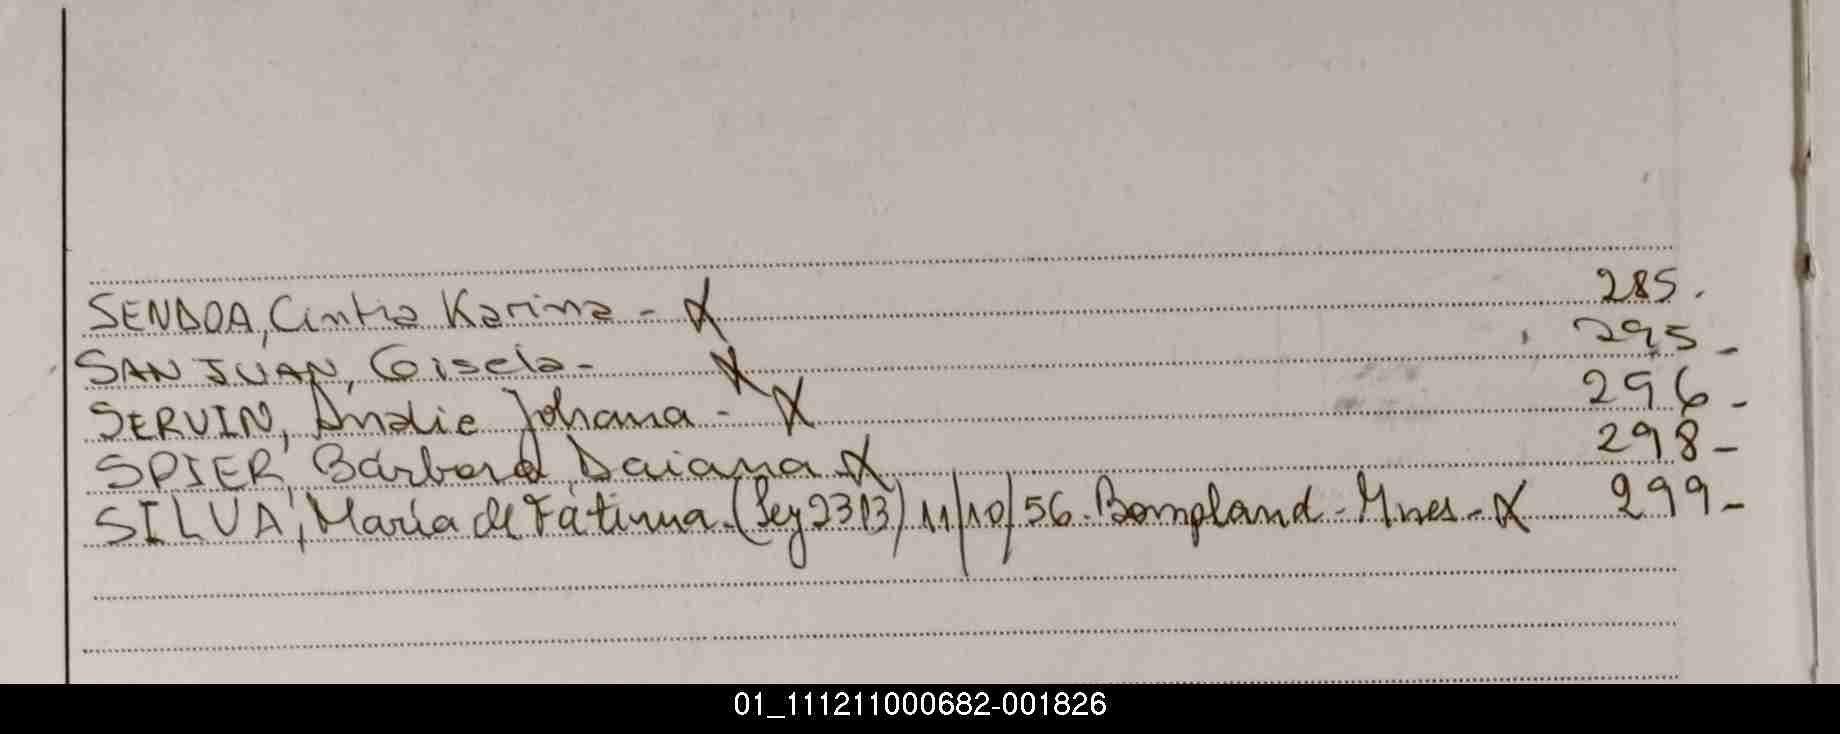 SENDOA, Cintia Karina - X 285.
SAN JUAN, Gisela - X 295-
SERVIN, Analie Johana - X 296-
SPIER, Bárbara Daiana X 298-
SILVA, María de Fátima (Ley 2313) 11/10/56. Bompland - Mnes - X 299-
01_111211000682-001826